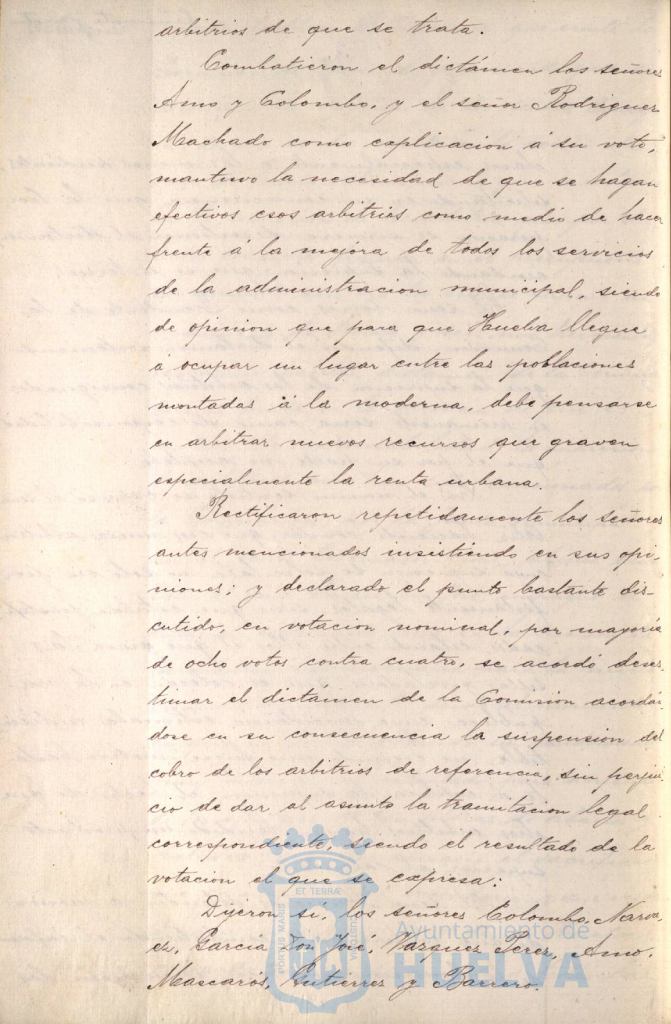 arbitrios de que se trata.
Combatieron el dictámen los señores
Amo y Colombo, y el señor Rodriguez
Machado como esplicacion á su voto,
mantuvo la necesidad de que se hagan
efectivos esos arbitrios como medio de hacer
frente á la mejora de todos los servicios
de la administracion municipal, siendo
de opinion que para que Huelva llegue
á ocupar un lugar entre las poblaciones
montadas á la moderna, debe pensarse
en arbitrar nuevos recursos que graven
especialmente la renta urbana.
Rectificaron repetidamente los señores
antes mencionados insistiendo en sus opi-
niones; y declarado el punto bastante dis-
cutido, en votacion nominal, por mayoría
de ocho votos contra cuatro, se acordó deses-
timar el dictámen de la Comisión acordán-
dose en su consecuencia la suspension del
cobro de los arbitrios de referencia, sin perjui-
cio de dar al asunto la tramitacion legal
correspondiente, siendo el resultado de la
votacion el que se espresa:
Dijeron sí, los señores Colombo, Narva-
ez, García Don José, Vazquez Perez, Amo,
Mascarós, Gutierrez y Barrero.
PORTUS MARIS ET TERRÆ CUSTODIA
Ayuntamiento de
HUELVA